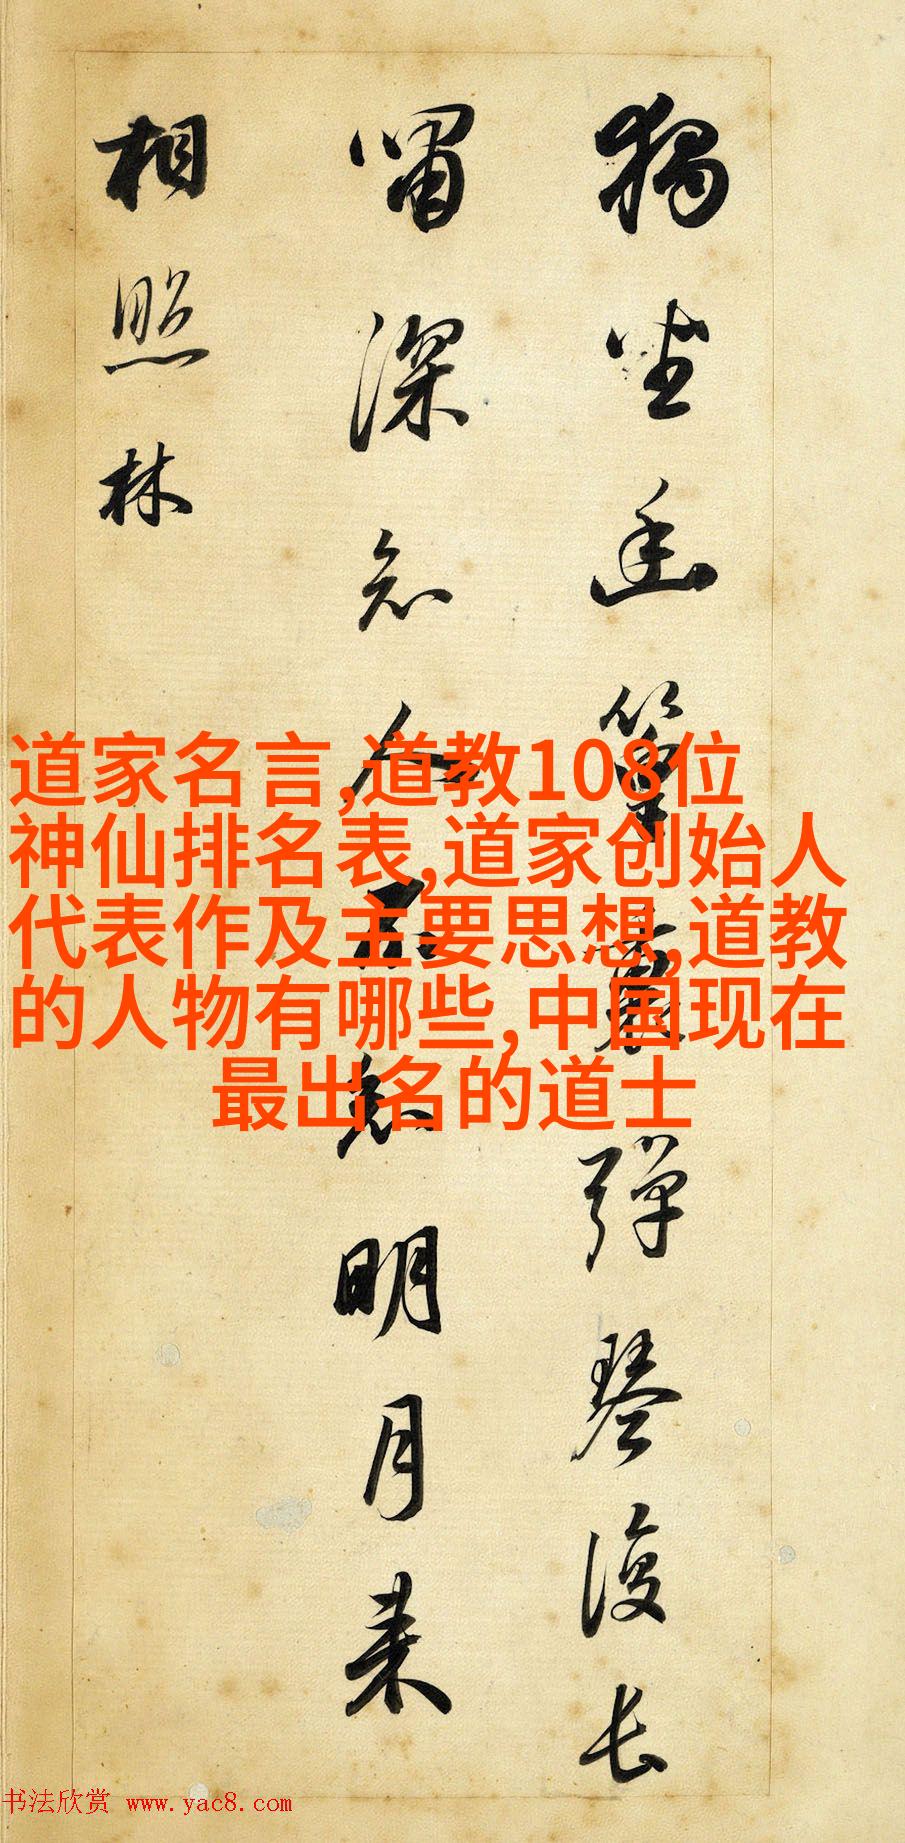 獨坐幽篁裏彈琴復長
嘯深知人不知明月来
相照林
道家名言,道教108位
神仙排名表,道家创始人
代表作及主要思想,道教
的人物有哪些,中国现在
最出名的道士
书法欣赏 www.yac8.com